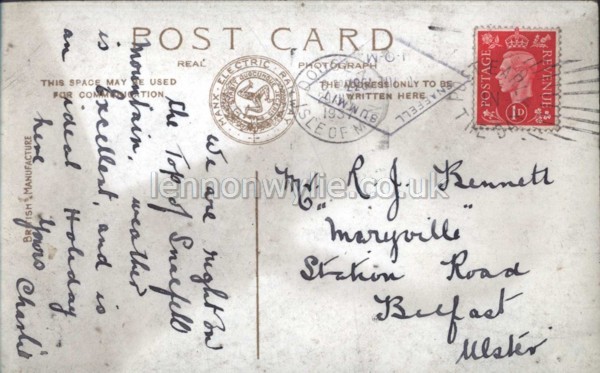 POST CARD
REAL PHOTOGRAPH
THIS SPACE MAY BE USED
FOR COMMUNICATION
THE ADDRESS ONLY TO BE
WRITTEN HERE
MANX ELECTRIC RAILWAY
DOUGLAS
1937
ISLE OF MAN
SNAEFELL
POSTAGE
REVENUE
1D
BRITISH MANUFACTURE
We are right on
the Top of Snaefell
Mountain, weather
is Excellent, and is
an ideal Holiday
here Yours Charlie
R. J. Bennett
"Maryville"
Station Road
Belfast
Ulster
lennonwylie.co.uk